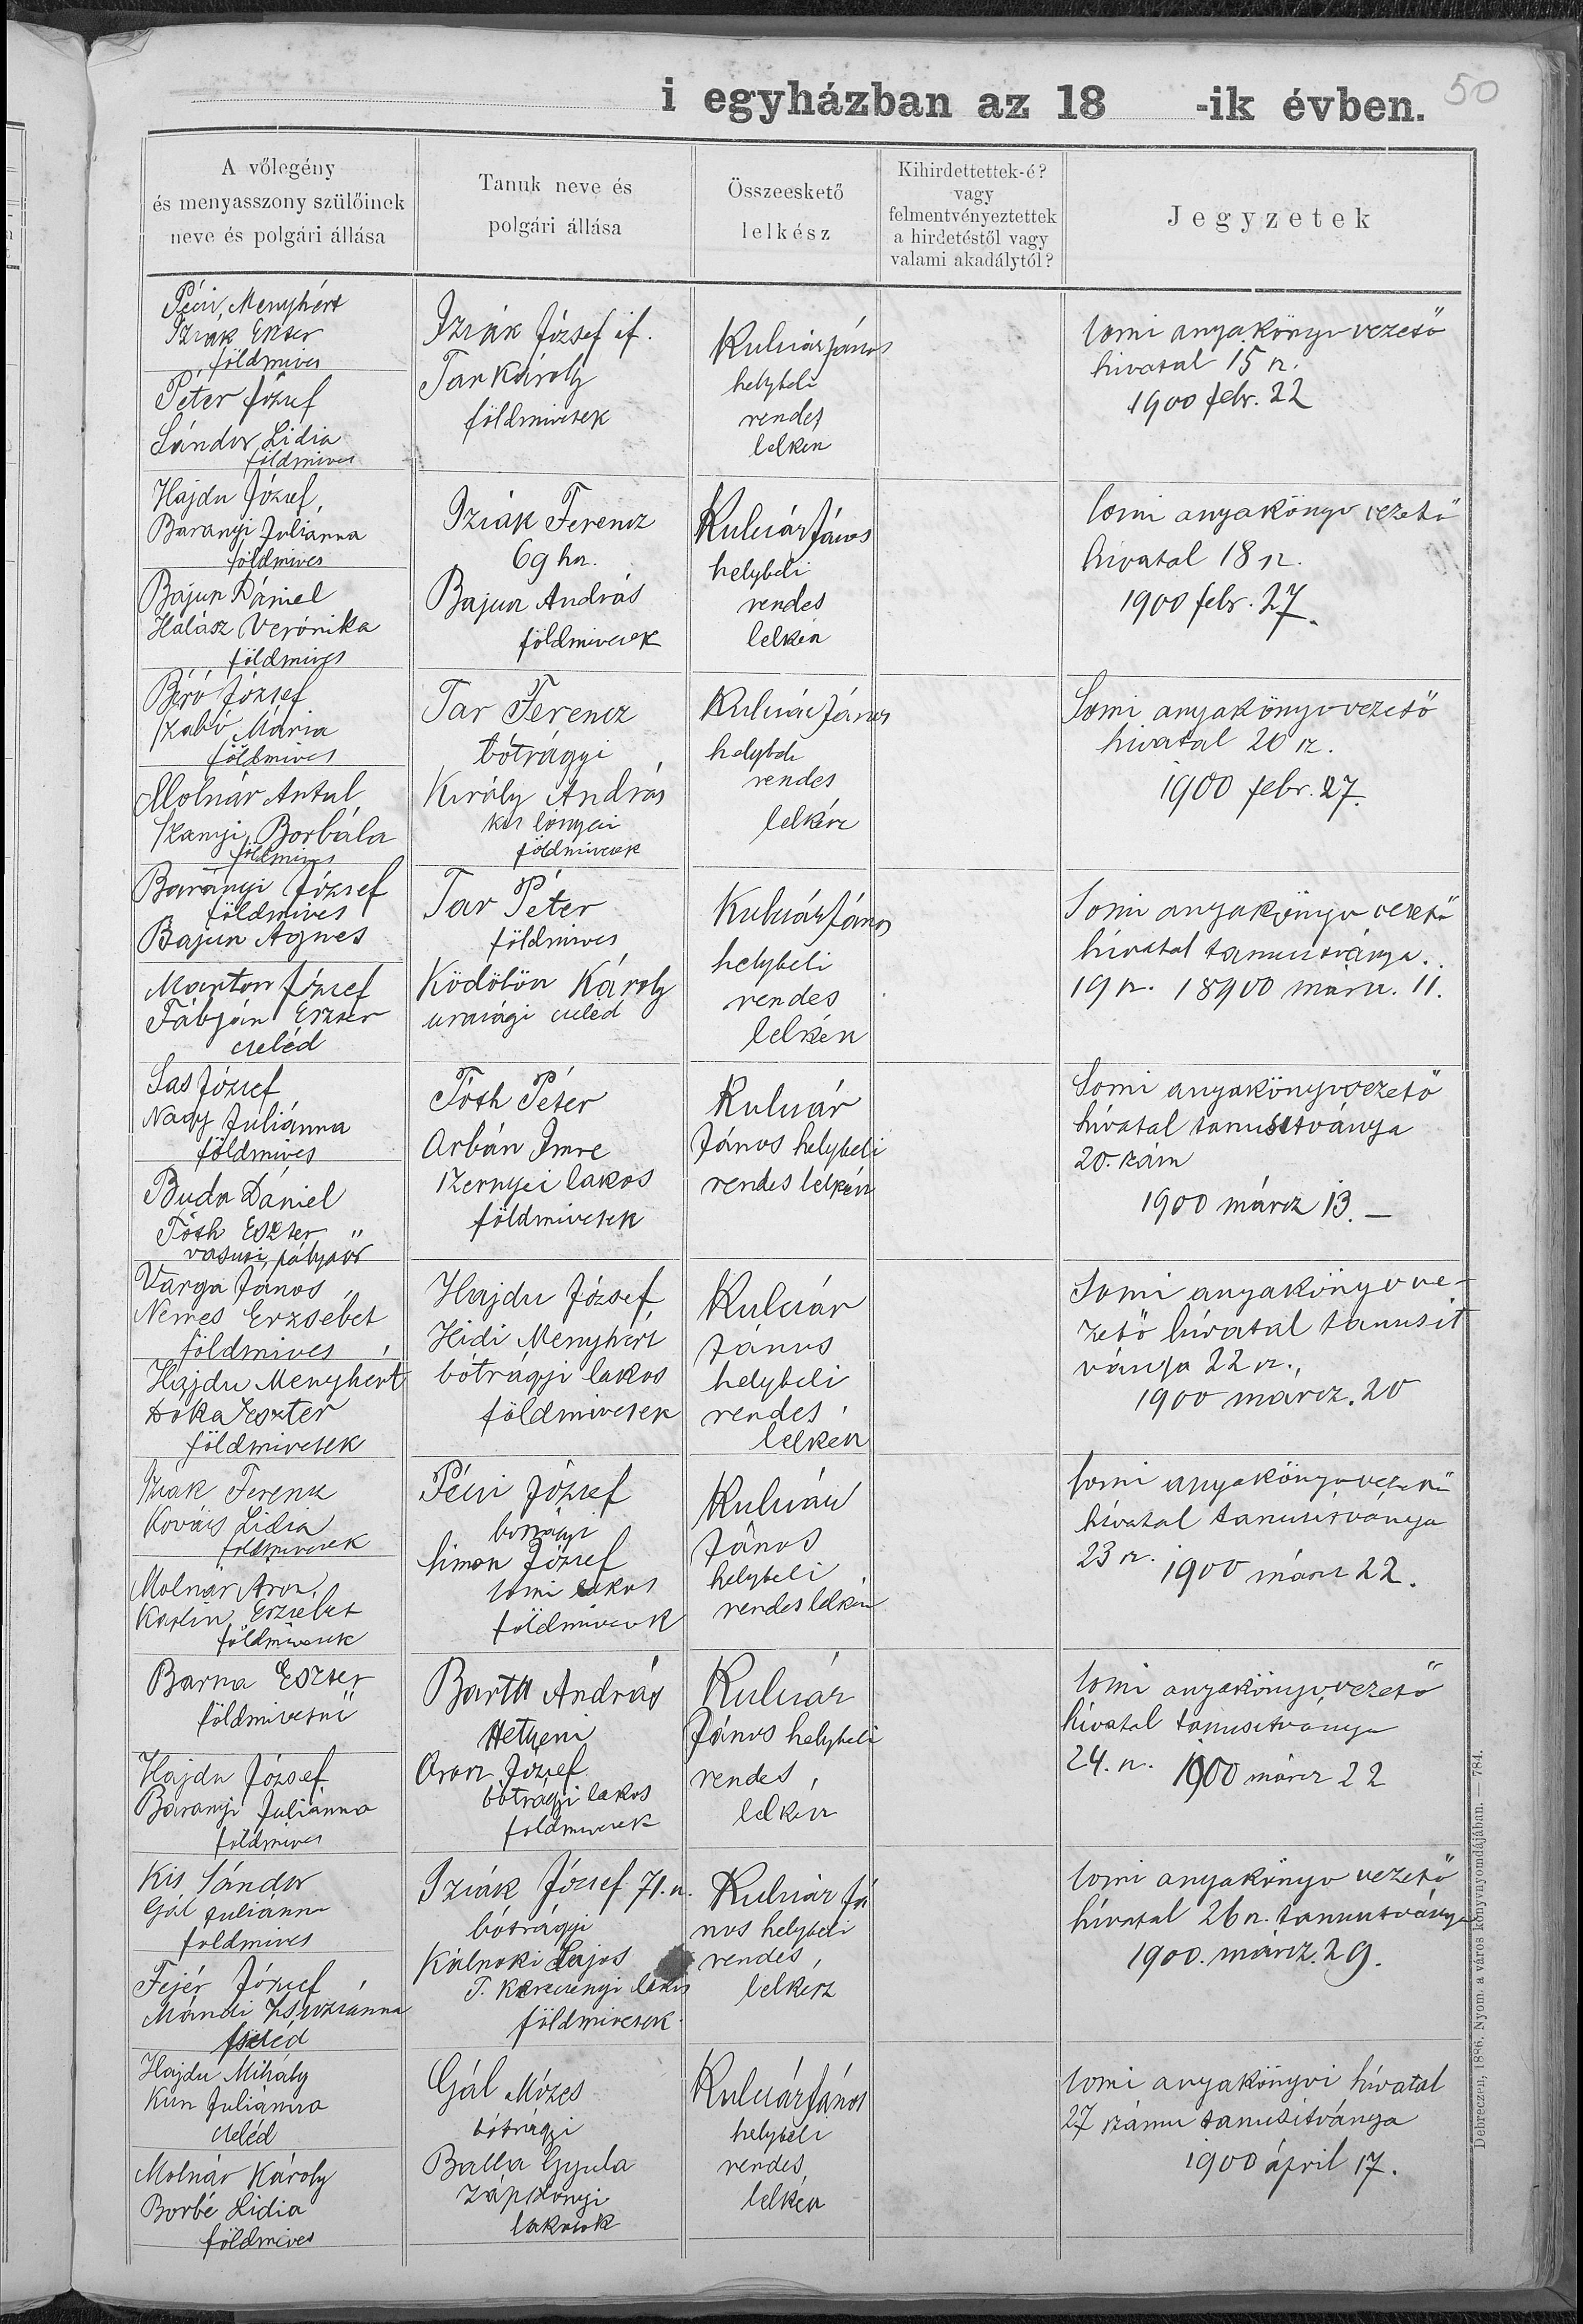 i egyházban az 18 -ik évben.
50
A vőlegény
és menyasszony szülőinek
neve és polgári állása
Tanuk neve és
polgári állása
Összeeskető
lelkész
Kihirdettettek-é?
vagy
felmentvényeztettek
a hirdetéstől vagy
valami akadálytól?
Jegyzetek
Péci Menyhért
Izsák Eszter
földmives
Péter József
Sándor Lidia
földmives
Izsák József if.
Tar Károly
földmivesek
Kulcsár János
helybeli
rendes
lelkész
somi anyakönyvvezető
hivatal 15 sz.
1900 febr. 22
Hajdu József
Baranyi Juliánna
földmives
Bajusz Dániel
Halász Verónika
földmives
Izsák Ferencz
69 hsz.
Bajusz András
földmivesek
Kulcsár János
helybeli
rendes
lelkész
somi anyakönyv vezető
hivatal 18 sz.
1900 febr. 27.
Biró József
Szabó Mária
földmives
Molnár Antal
Szanyi Borbála
földmives
Tar Ferencz
bótrágyi
Király András
kis lónyai
földmivesek
Kulcsár János
helybeli
rendes
lelkész
Somi anyakönyvvezető
hivatal 20 sz.
1900 febr. 27.
Baranyi József
földmives
Bajusz Ágnes
Marton József
Fábján Eszter
cseléd
Tar Péter
földmives
Ködöbön Károly
urasági cseléd
Kulcsár János
helybeli
rendes
lelkész
Somi anyakönyv vezető
hivatal tanusitványa.
19 sz. 18900 márcz. 11.
Sas József
Nagy Juliánna
földmives
Buda Dániel
Tóth Eszter
vasuti pályaőr
Tóth Péter
Arbán Imre
szernyei lakos
földmivesek
Kulcsár
János helybeli
rendes lelkész
Somi anyakönyvvezető
hivatal tanusitványa
20. szám
1900 márcz 13. —
Varga János
Nemes Erzsébet
földmives
Hajdu Menyhért
Dóka Eszter
földmivesek
Hajdu József
Hidi Menyhért
bótrágyi lakos
földmivesek
Kulcsár
János
helybeli
rendes
lelkész
Somi anyakönyv ve-
zető hivatal tanusit
ványa 22 sz.,
1900 márcz. 20
Izsák Ferencz
Kovács Lidia
földmivesek
Molnár Áron
Erzsébet
földmivesek
Péci József
botrágyi
Simon József
somi lakos
földmivesek
Kulcsár
János
helybeli
rendes lelkész
somi anyakönyvvezető
hivatal tanusitványa
23 sz. 1900 márcz 22.
Barna Eszter
földmivesnő
Hajdu József
Baranyi Juliánna
földmives
Barta András
Hetyeni
Oroz József
bótrágyi lakos
földmivesek
Kulcsár
János helybeli
rendes
lelkész
somi anyakönyvvezető
hivatal tanusitványa
24. sz. 1900 márcz 22
Kis Sándor
Gál Juliánna
földmives
Fejér József
Mándi Zsuzsánna
cseléd
Izsák József 71. sz.
bótrágyi
Kálnoki Lajos
T. Kerecsenyi lakos
földmivesek
Kulcsár Já
nos helybeli
rendes
lelkész
somi anyakönyv vezető
hivatal 26 sz. tanusitványa
1900. márcz. 29.
Hajdu Mihály
Kun Juliánna
cseléd
Molnár Károly
Borbé Lidia
földmives
Gál Mózes
bótrágyi
Balla Gyula
zápszonyi
lakosok
Kulcsár János
helybeli
rendes
lelkész
somi anyakönyvi hivatal
27 számu tanusitványa
1900 ápril 17.
Debreczen, 1886. Nyom. a város könyvnyomdájában. — 784.